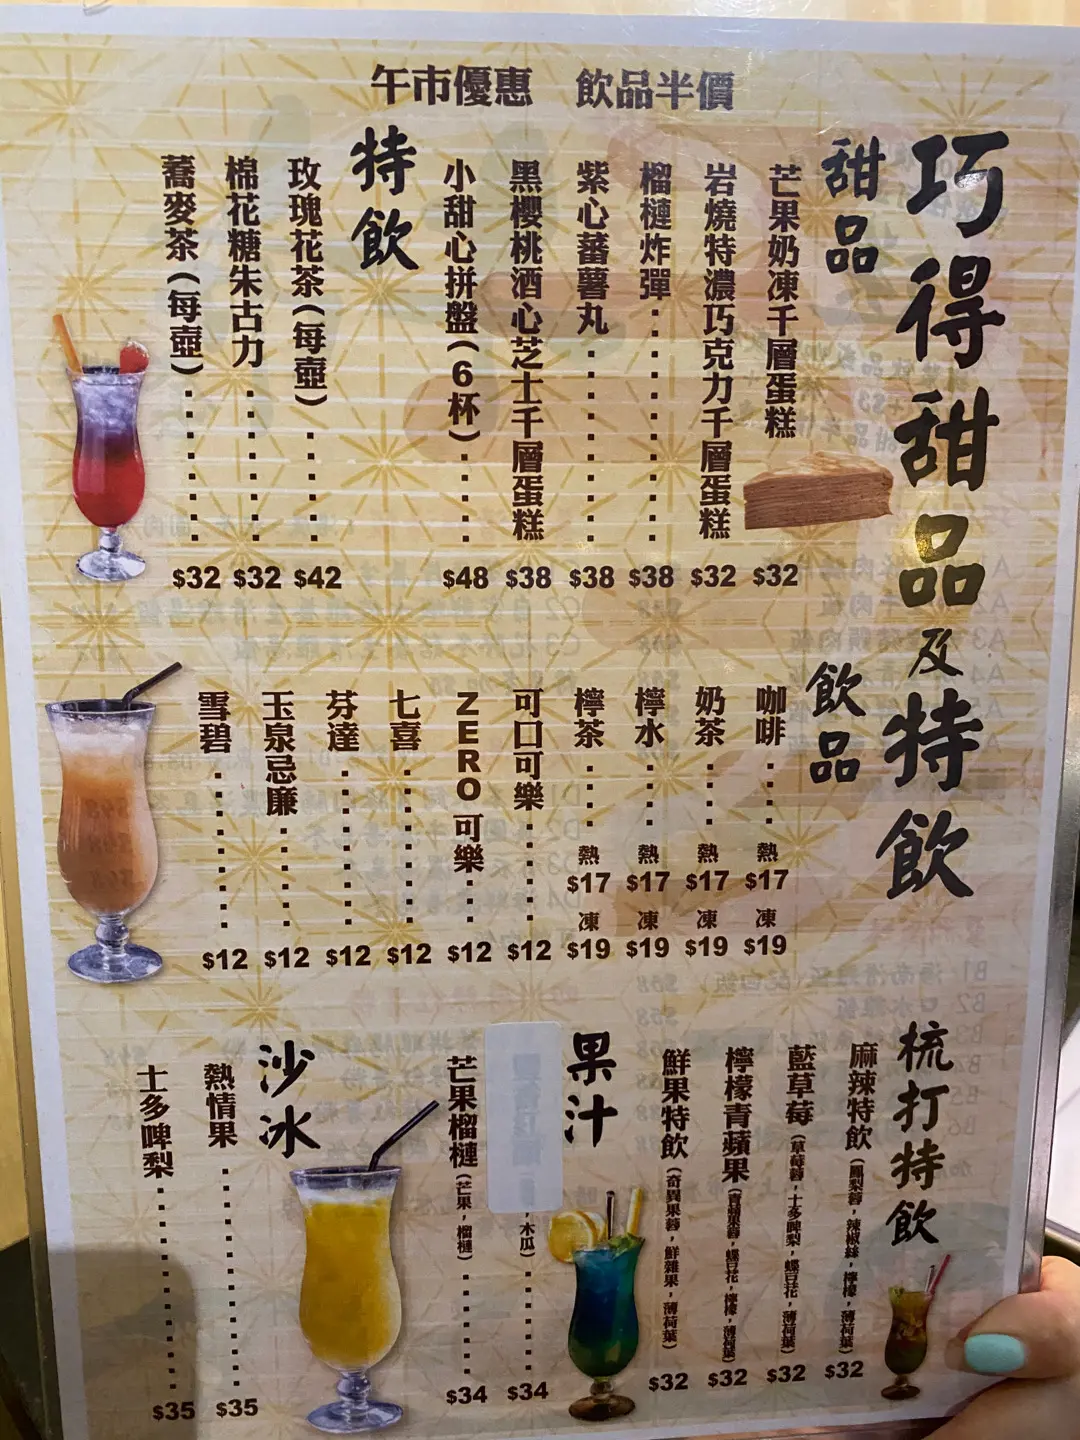 午市優惠 飲品半價
巧得甜品及特飲
甜品
芒果奶凍千層蛋糕 $32
岩燒特濃巧克力千層蛋糕 $32
榴槤炸彈 $38
紫心蕃薯丸 $38
黑櫻桃酒心芝士千層蛋糕 $38
小甜心拼盤(6杯) $48
特飲
玫瑰花茶(每壺) $42
棉花糖朱古力 $32
蕎麥茶(每壺) $32
飲品
咖啡 熱 $17 凍 $19
奶茶 熱 $17 凍 $19
檸水 熱 $17 凍 $19
檸茶 熱 $17 凍 $19
可口可樂 $12
ZERO可樂 $12
七喜 $12
芬達 $12
玉泉忌廉 $12
雪碧 $12
梳打特飲
麻辣特飲(鳳梨蓉，辣椒絲，檸檬，薄荷葉) $32
藍草莓(草莓蓉，士多啤梨，蝶豆花，薄荷葉) $32
檸檬青蘋果(青蘋果蓉，蝶豆花，檸檬，薄荷葉) $32
鮮果特飲(奇異果蓉，鮮雜果，薄荷葉) $32
果汁
，木瓜) $34
芒果榴槤(芒果，榴槤) $34
沙冰
熱情果 $35
士多啤梨 $35